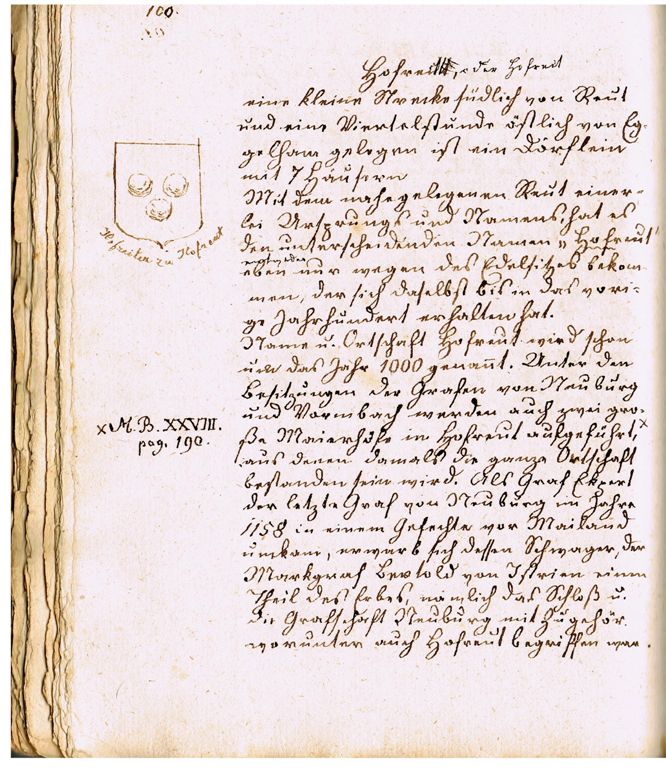 100.
Hofreut, oder Hofreit
eine kleine Strecke südlich von Reut
und eine Viertelstunde östlich von Eg-
gelham gelegen ist ein Dörflein
mit 7 Häusern
Mit dem nahegelegenen Reut einer-
lei Ursprungs und Namens, hat es
den unterscheidenden Namen „Hofreut"
eben nur wegen des Edelsitzes bekom-
men, der sich daselbst bis in das vori-
ge Jahrhundert erhalten hat.
Hofreiter zu Hofreut
Name u. Ortschaft Hofreut wird schon
um das Jahr 1000 genannt. Unter den
Besitzungen der Grafen von Neuburg
und Vormbach werden auch zwei gro-
ße Maierhöfe in Hofreut aufgeführt,x
x M. B. XXVIII.
pag. 190.
aus denen damals die ganze Ortschaft
bestanden sein wird. Als Graf Ekbert
der letzte Graf von Neuburg im Jahre
1158 in einem Gefechte vor Mailand
umkam, erwarb sich dessen Schwager, der
Markgraf Bertold von Istrien einen
Theil des Erbes, nämlich das Schloß u.
die Grafschaft Neuburg mit Zugehör
worunter auch Hofreut begriffen war.